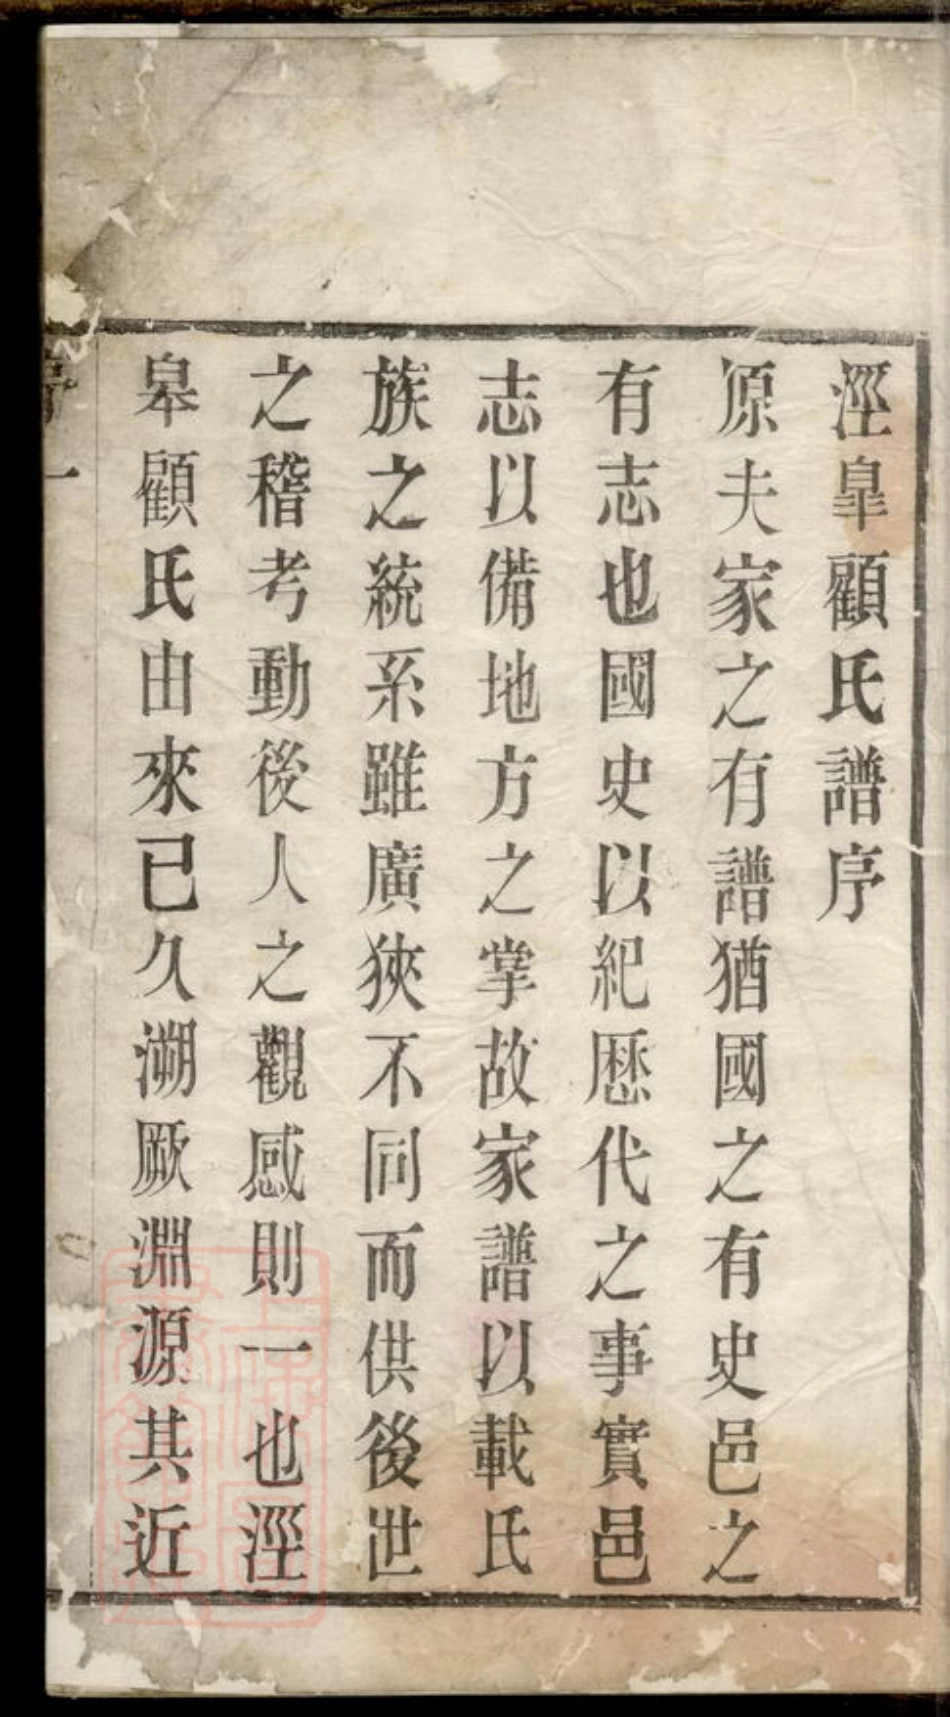 涇臯顧氏譜序
原夫家之有譜猶國之有史邑之
有志也國史以紀歷代之事實邑
志以備地方之掌故家譜以載氏
族之統系雖廣狹不同而供後世
之稽考動後人之觀感則一也涇
皋顧氏由來已久溯厥淵源其近
一